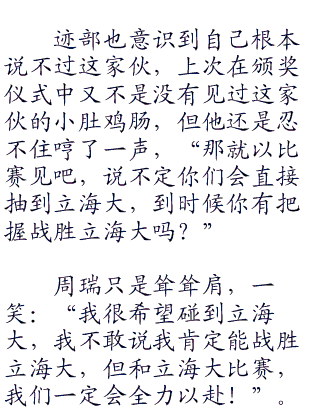 迹部也意识到自己根本
说不过这家伙，上次在颁奖
仪式中又不是没有见过这家
伙的小肚鸡肠，但他还是忍
不住哼了一声，“那就以比
赛见吧，说不定你们会直接
抽到立海大，到时候你有把
握战胜立海大吗？”
周瑞只是耸耸肩，一
笑：“我很希望碰到立海
大，我不敢说我肯定能战胜
立海大，但和立海大比赛，
我们一定会全力以赴！”。